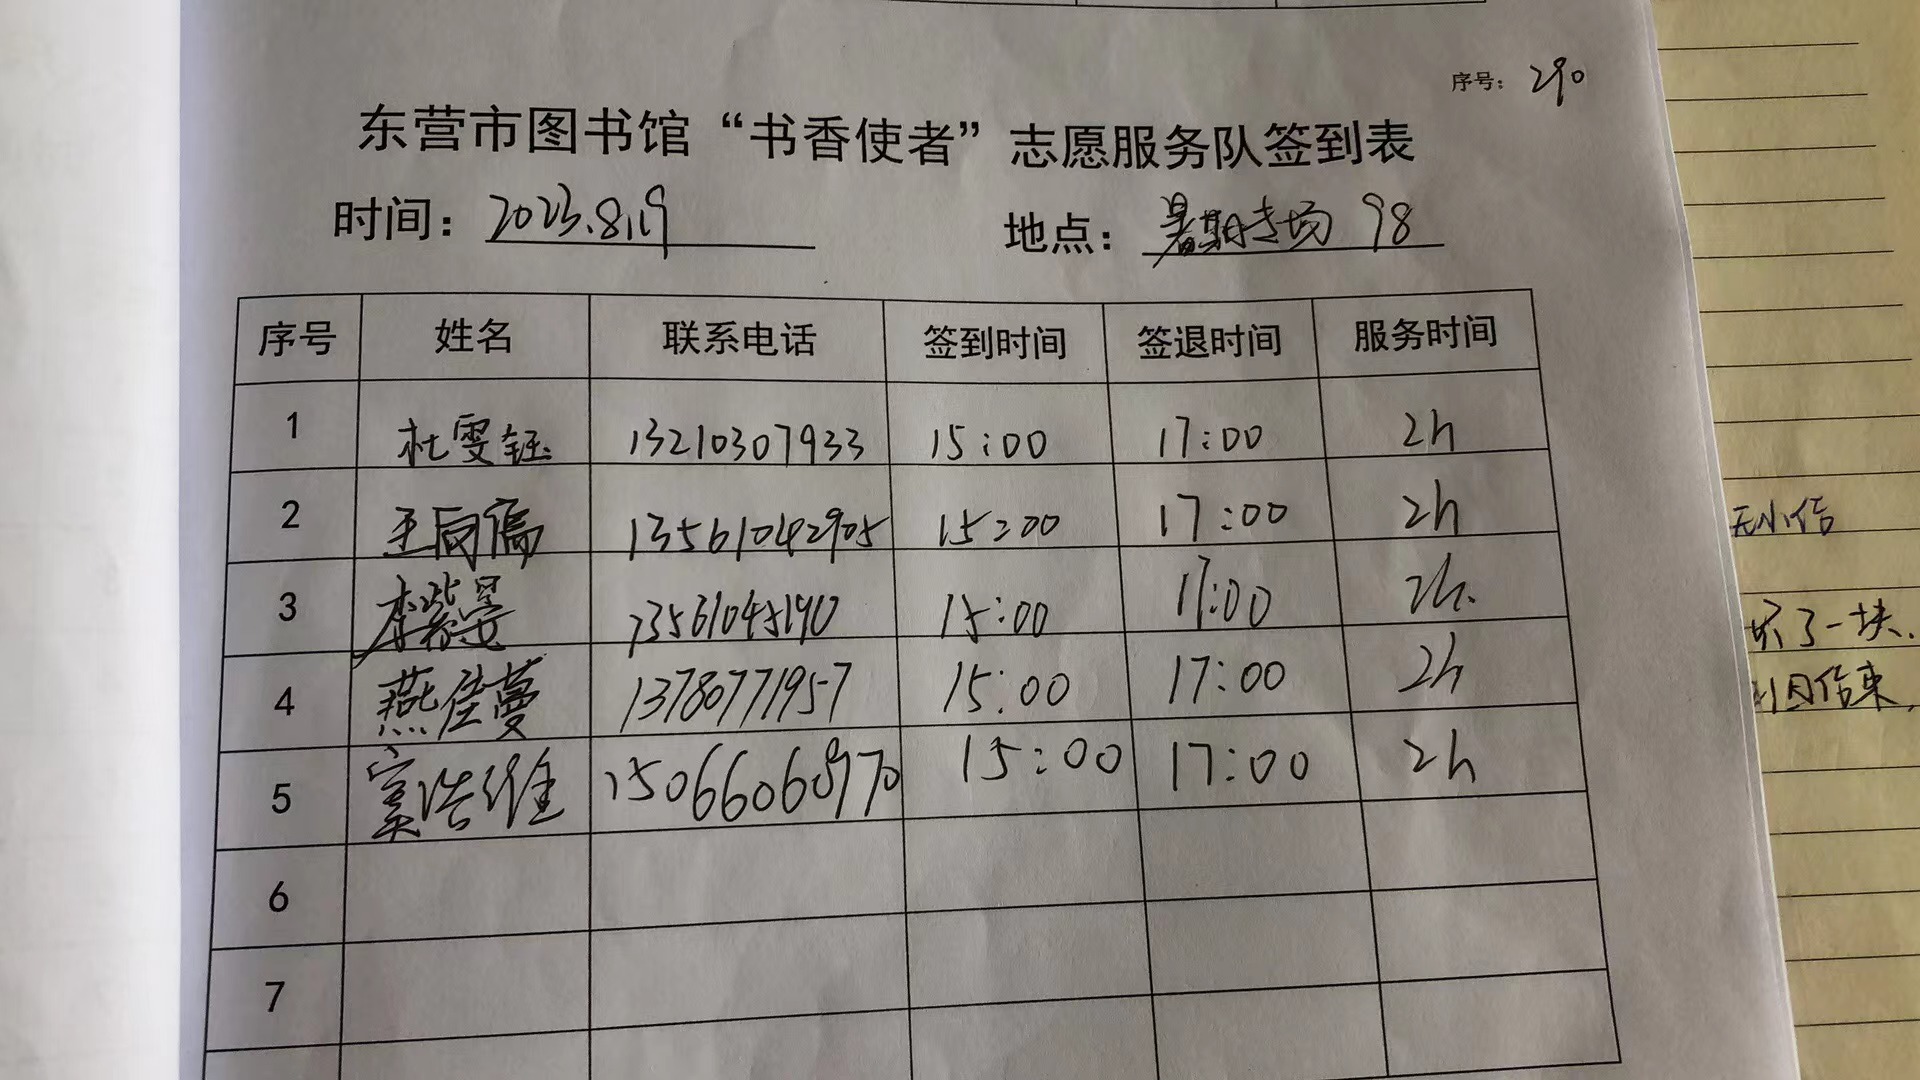 序号: 290
东营市图书馆“书香使者”志愿服务队签到表
时间: 2023.8.19 地点: 暑期专场 98
序号 姓名 联系电话 签到时间 签退时间 服务时间
1 杜雯钰 13210307933 15:00 17:00 2h
2 王向儒 13561042905 15:00 17:00 2h
3 李紫旻 13561045190 15:00 17:00 2h.
4 燕佳蔓 13780771957 15:00 17:00 2h
5 窦浩维 15066060970 15:00 17:00 2h
6
7
坏了一块.